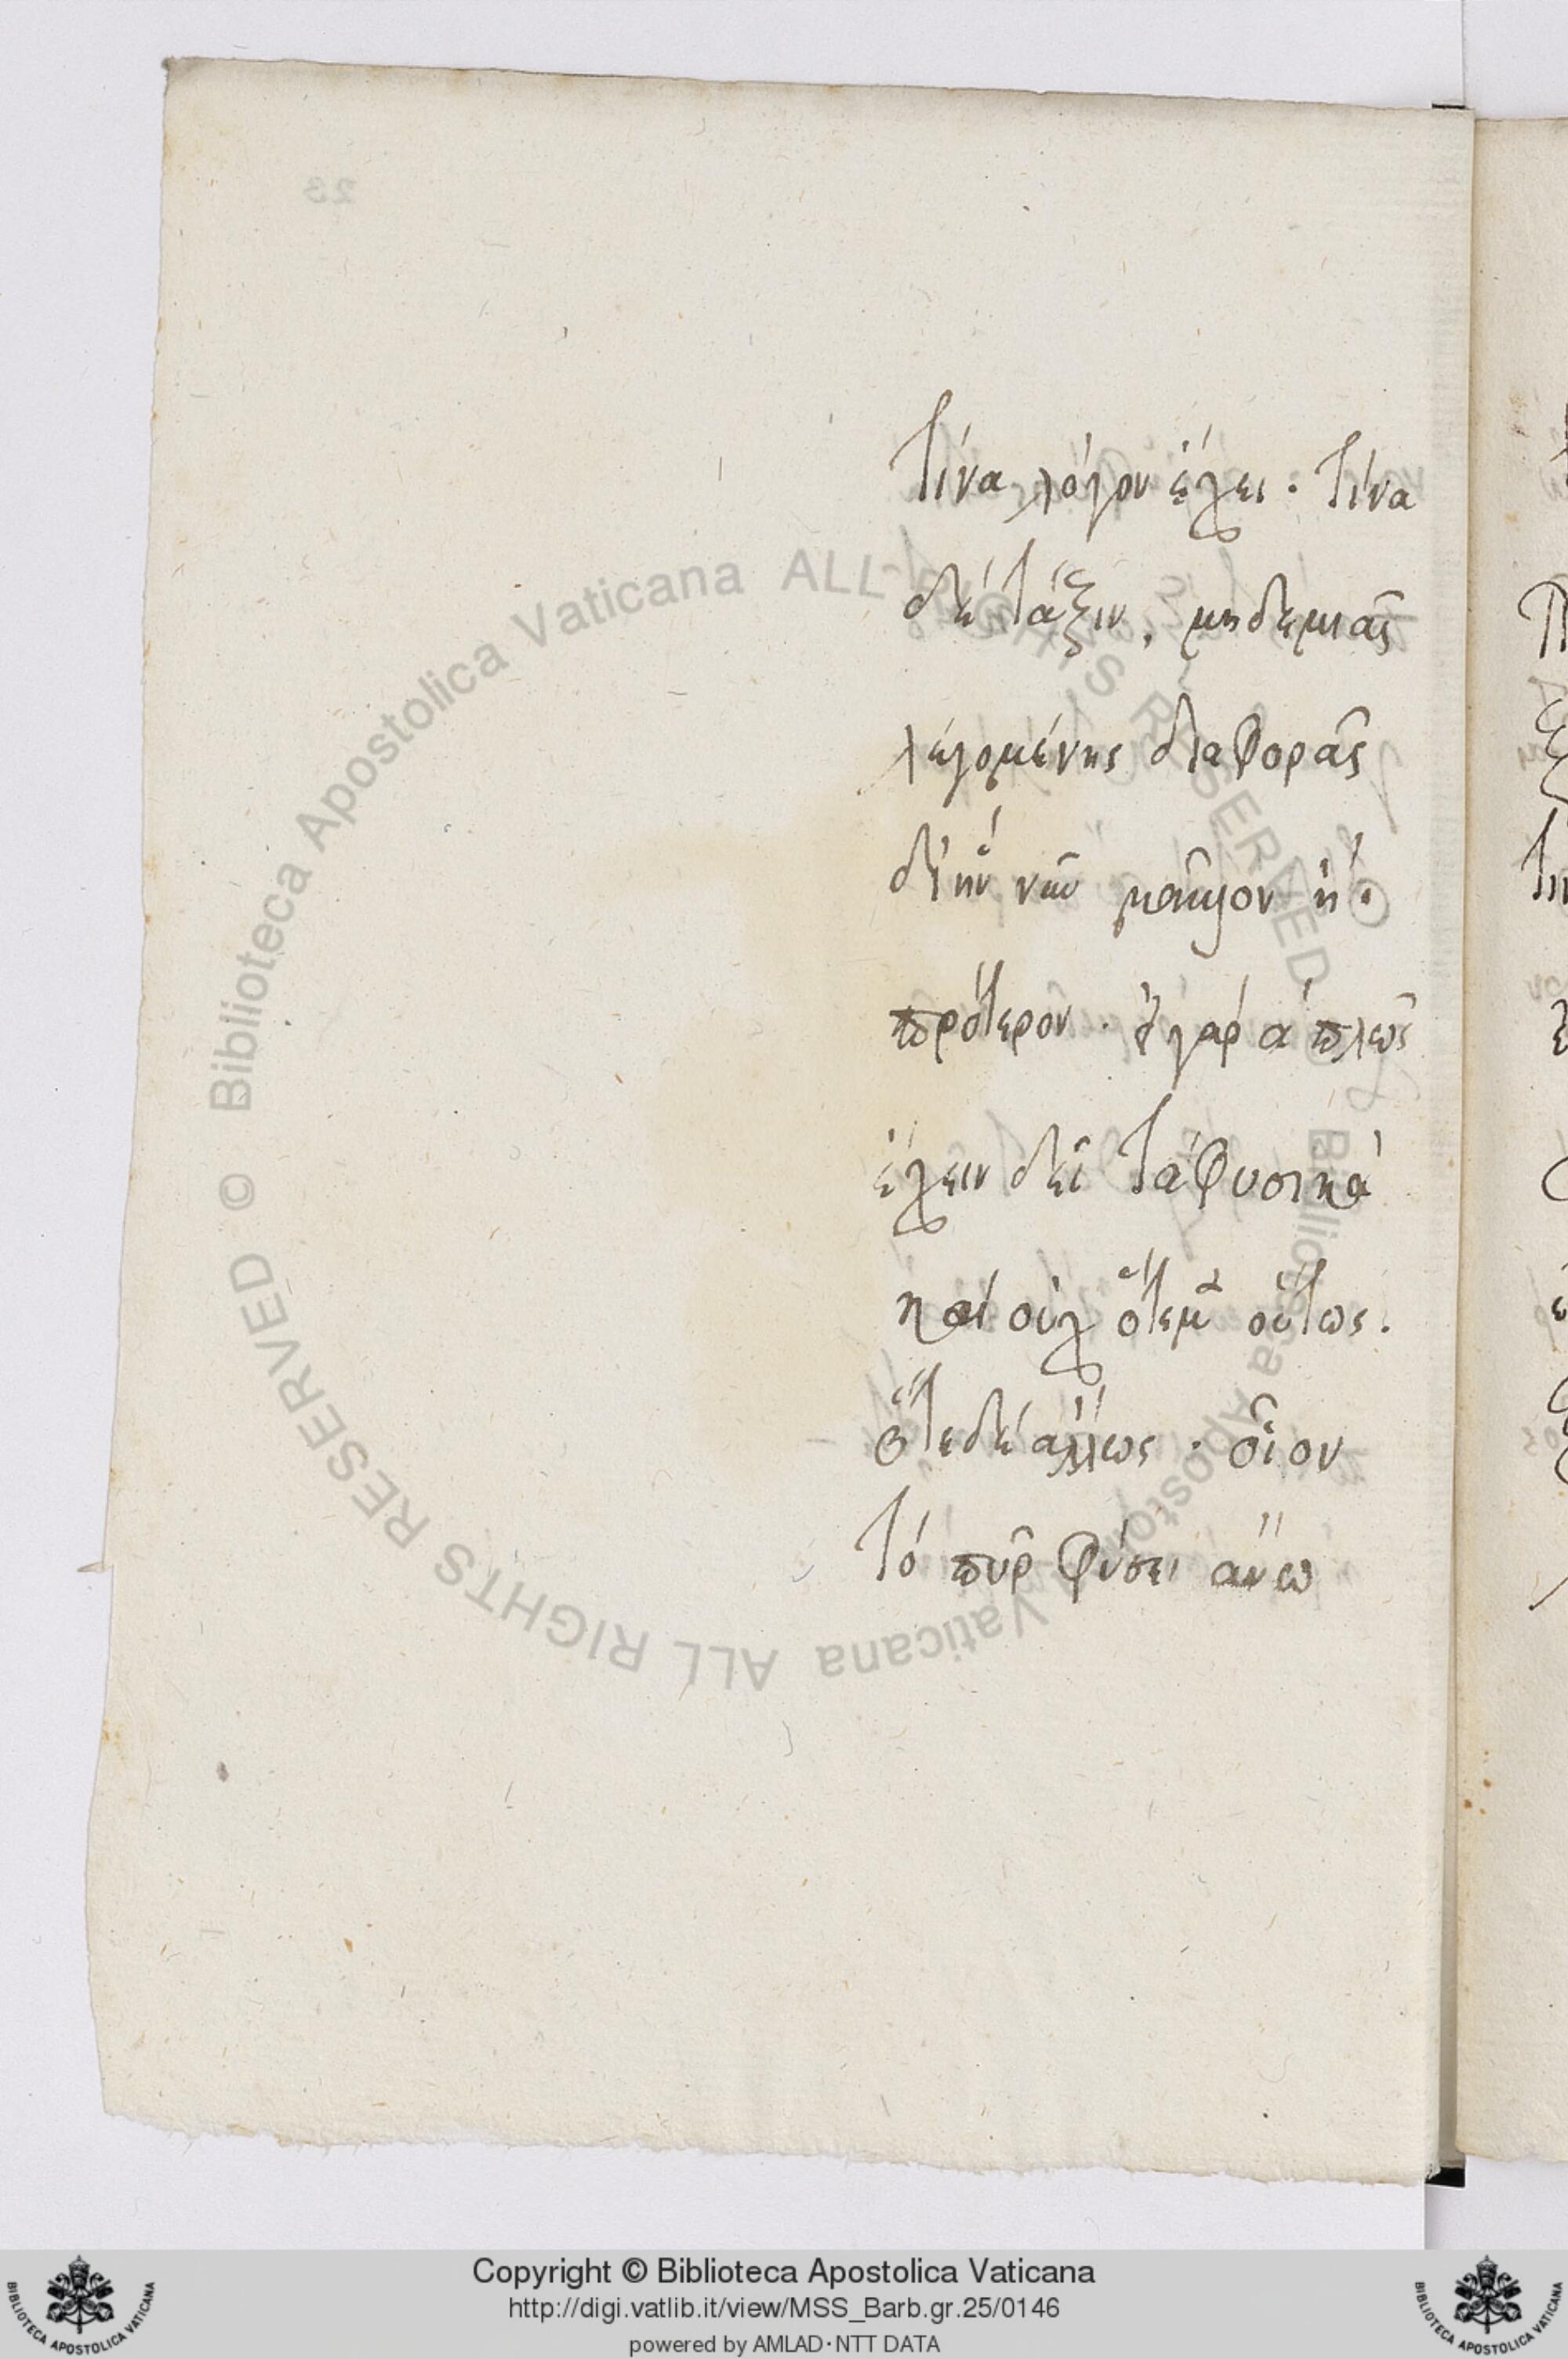 τίνα λόγον ἔχει. τίνα
δὲ τάξιν, μηδεμιᾶς
λεγομένης διαφορᾶς
δι' ἣν νῦν μᾶλλον ἢ.
πρότερον. ἢ γὰρ ἁπλῶς
ἔχειν δεῖ τὰ φυσικὰ
καὶ οὐχ ὅτε μὲν οὕτως.
ὅτε δὲ ἄλλως. οἷον
τὸ πῦρ φύσει ἄνω
23
Biblioteca Apostolica Vaticana ALL RIGHTS RESERVED © Biblioteca Apostolica Vaticana ALL RIGHTS RESERVED ©
Copyright © Biblioteca Apostolica Vaticana
http://digi.vatlib.it/view/MSS_Barb.gr.25/0146
powered by AMLAD·NTT DATA
BIBLIOTECA APOSTOLICA VATICANA
BIBLIOTECA APOSTOLICA VATICANA